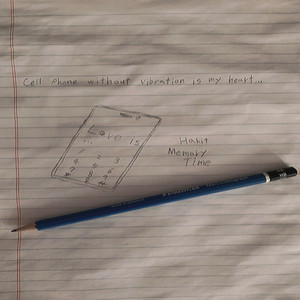 Cell Phone without vibration is my heart...
Love is
1 2 3
Habit
Memory
Time
STAEDTLER